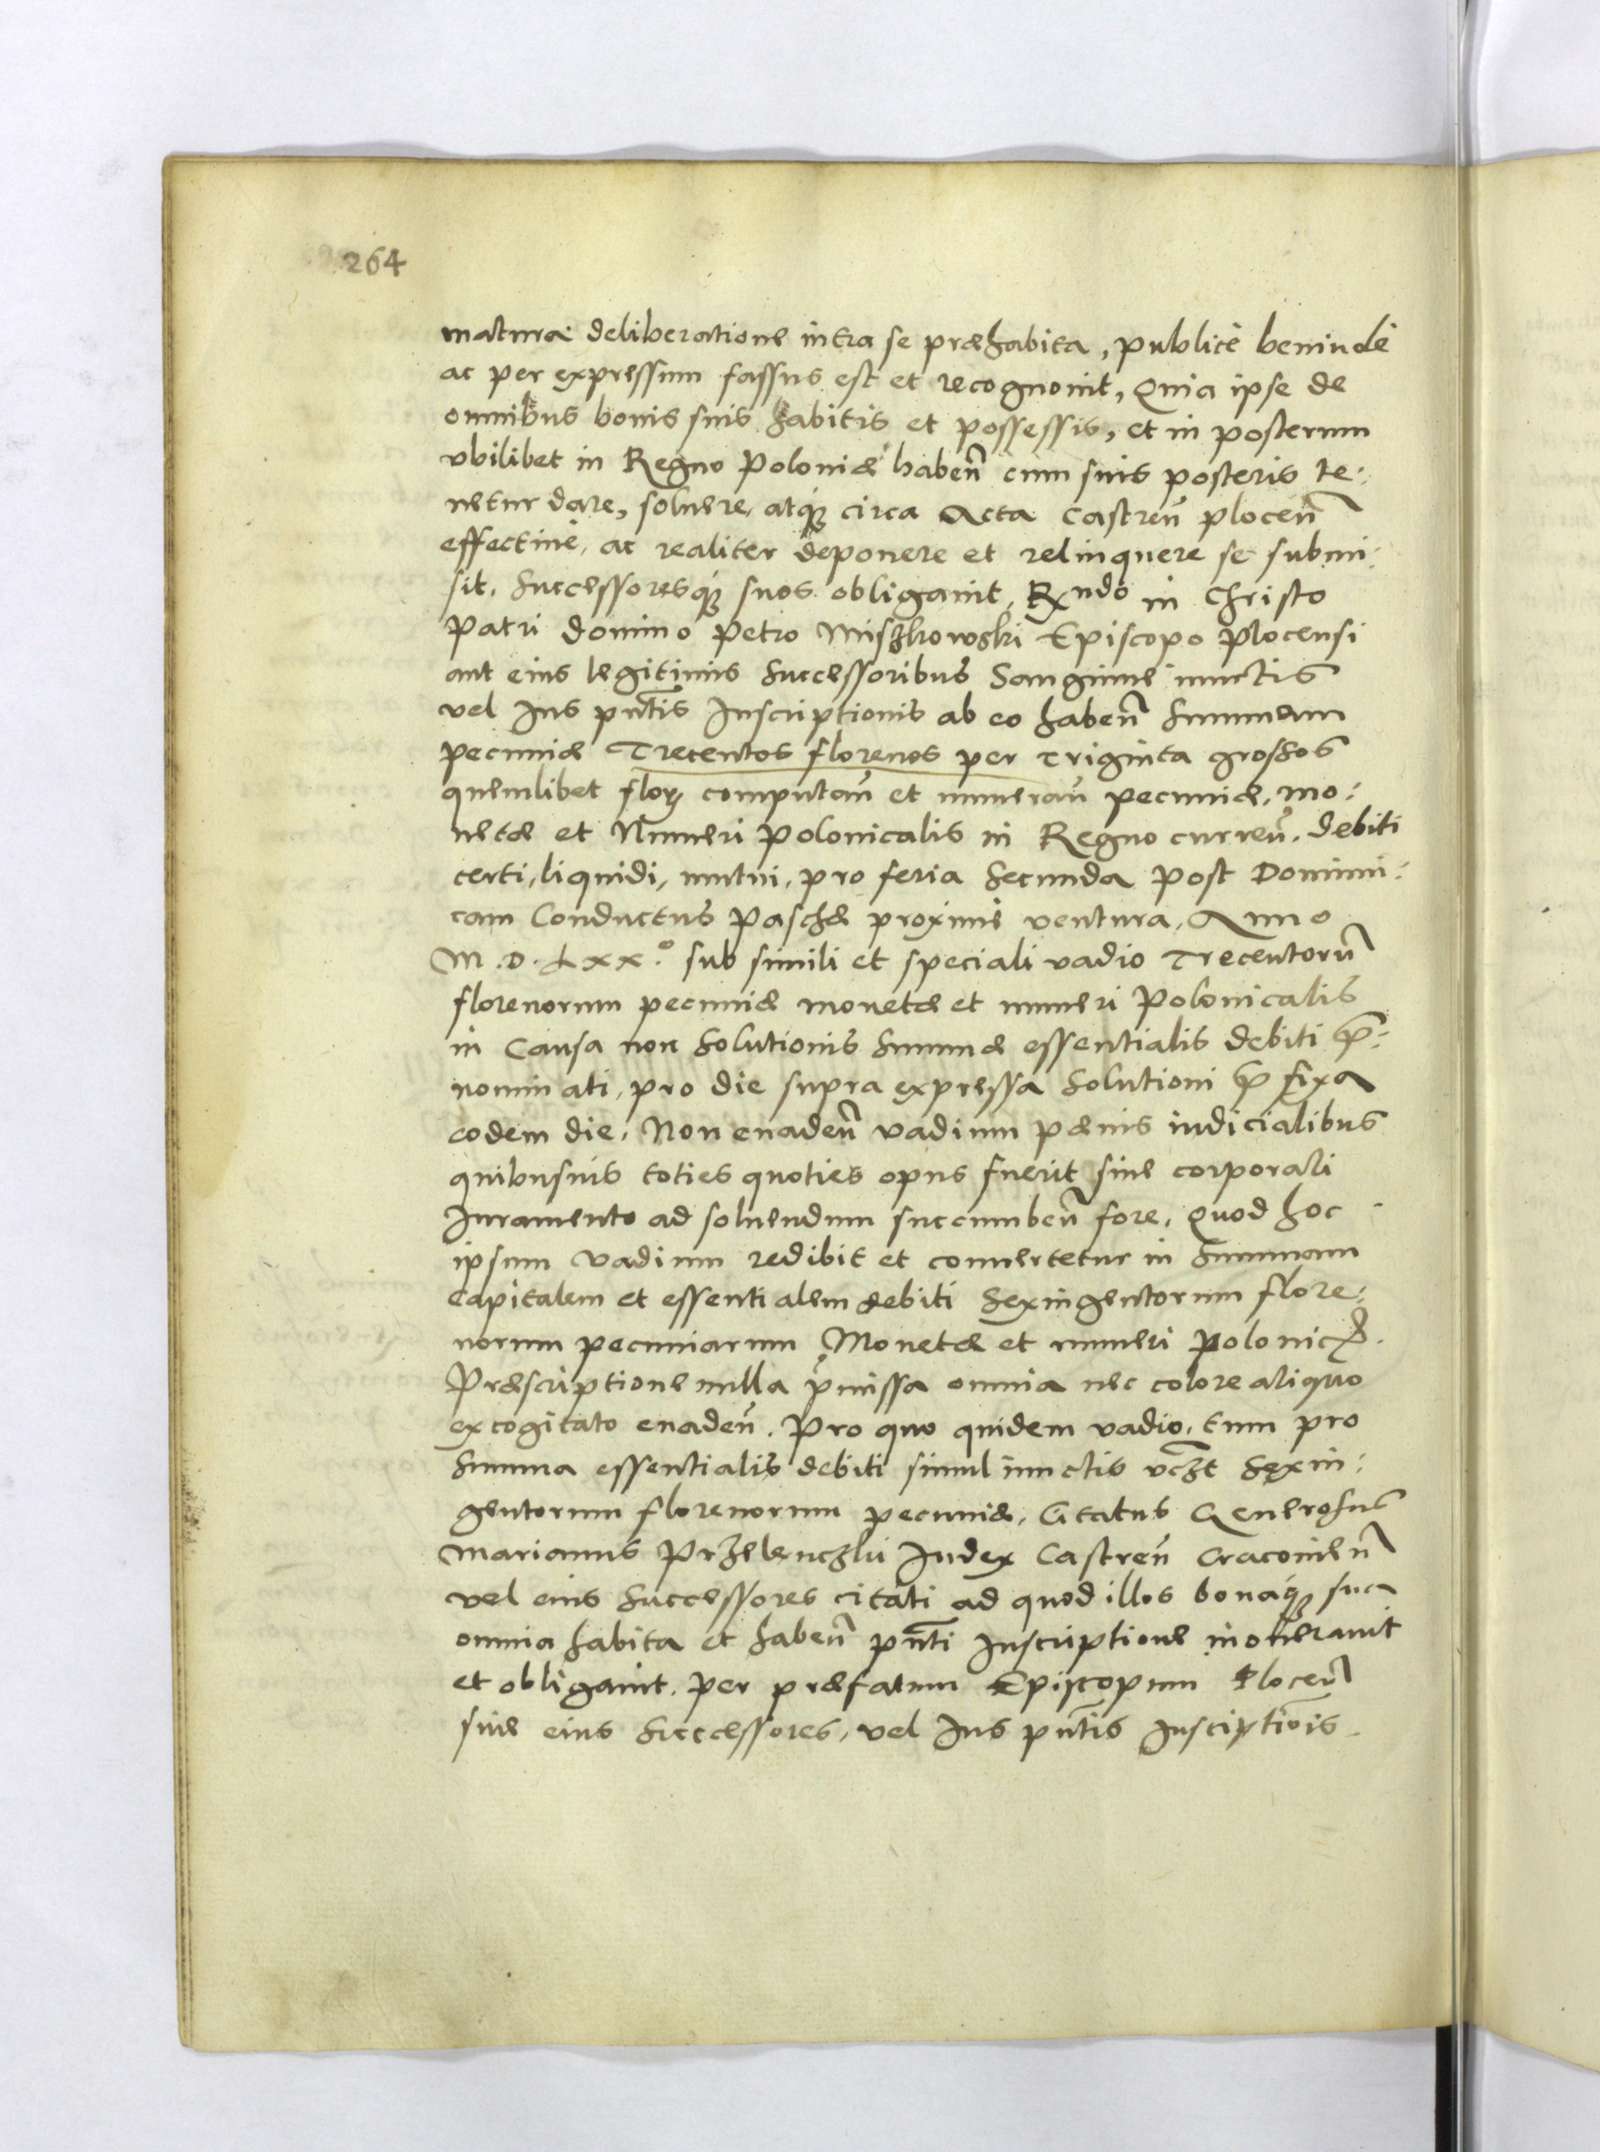 264
matura deliberatione intra se præhabita, publicè beniuolè
ac per expressum fassus est et recognouit, Quia ipse de
omnibus bonis suis habitis et possessis, et in posterum
vbilibet in Regno Poloniæ haben̄ cum suis posteris te:
netur dare, soluere, atq́ꝫ circa Acta Castren̄ plocen̄
effectiuè, ac realiter deponere et relinquere se submi:
sit, Successoresq́ꝫ suos obligauit, Rndo in Christo
Patri domino Petro Miszkowski Episcopo Plocensi
aut eius legitimis Successoribus Sanguine iunctis
vel Ius pn̄tis Inscriptionis ab eo haben̄ Summam
pecuniæ Trecentos florenos per Triginta grossos
quemlibet flor. computan̄ et numeran̄ pecuniæ, mo:
netæ et Numeri Polonicalis in Regno curren̄. debiti
certi, liquidi, mutui, pro feria Secunda Post Domini:
cam Conductus Paschæ proximè ventura, Anno
M.D.LXX.º sub simili et speciali vadio Trecentorum̄
florenorum pecuniæ monetæ et numeri Polonicalis
in Causa non Solutionis Summæ essentialis debiti p̄:
nominati, pro die supra expressa Solutioni p̄fixa
eodem die, Non euaden̄ vadium pænis iudicialibus
quibusuis toties quoties opus fuerit sine corporali
Iuramento ad soluendum succumben̄ fore, Quod hoc
ipsum vadium redibit et conuertetur in Summam
Capitalem et essentialem debiti Sexingentorum flore:
norum pecuniarum Monetæ et numeri polonic.
Præscriptione nulla p̄missa omnia nec colore aliquo
excogitato euaden̄. Pro quo quidem vadio, tum pro
Summa essentialis debiti simul iunctis vcꝫt Sexin:
gentorum florenorum pecuniæ, Citatus Generosus
Marianus Przelenczki Iudex Castren̄ Cracouien̄
vel eius Successores citati ad quod illos bonaq́ꝫ sua
omnia habita et haben̄ pn̄ti Inscriptione inonerauit
et obligauit. Per præfatum Episcopum Plocen̄
siue eius Successores, vel Ius pn̄tis Insciptiōis